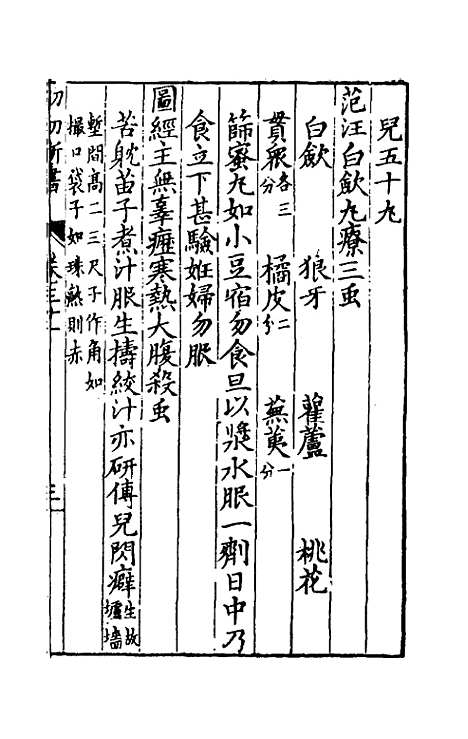 兒五十九
范汪白歛丸療三䖝
白歛　狼牙　雚蘆　桃花
貫衆各三分　橘皮二分　蕪荑一分
篩蜜丸如小豆宿勿食旦以漿水服一劑日中乃
食立下甚驗姙婦勿服
圖經主無辜痓寒熱大腹殺䖝
苦躭苗子煮汁服生擣絞汁亦研傅兒閃癖生故墟墻
塹間髙二三尺子作角如
撮口袋子如珠熟則赤